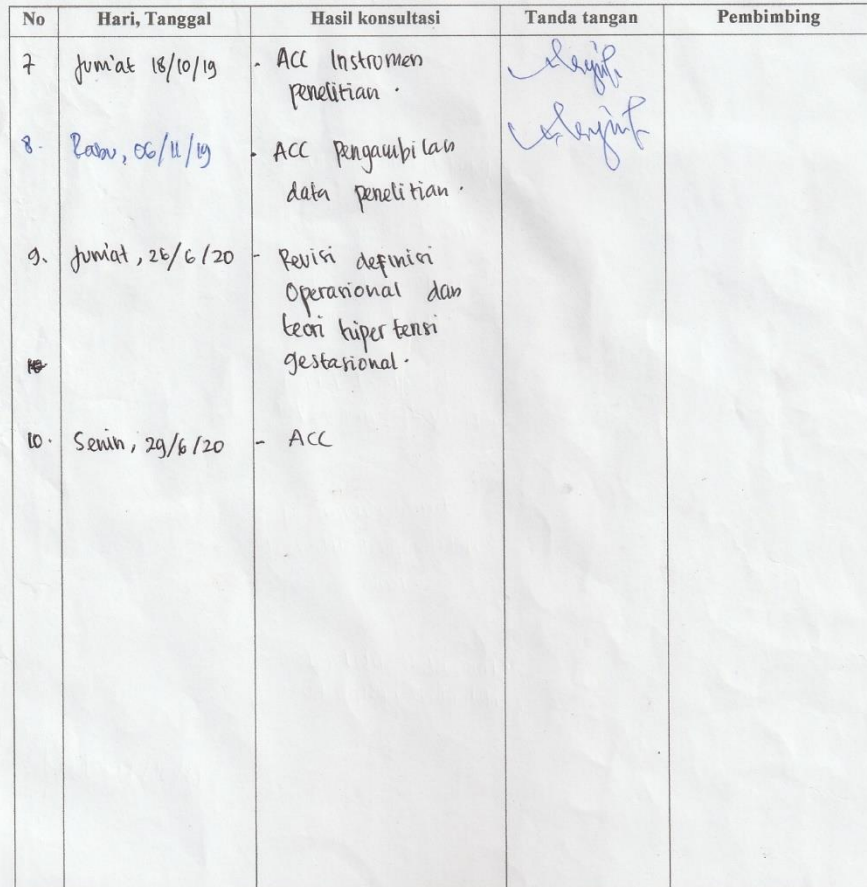 No Hari, Tanggal Hasil konsultasi Tanda tangan Pembimbing
7 Jum'at 18/10/19 - ACC Instrumen
penelitian.
8. Rabu, 06/11/19 - ACC pengambilan
data penelitian.
9. Jum'at, 26/6/20 - Revisi definisi
Operasional dan
teori hipertensi
gestasional.
10. Senin, 29/6/20 - ACC